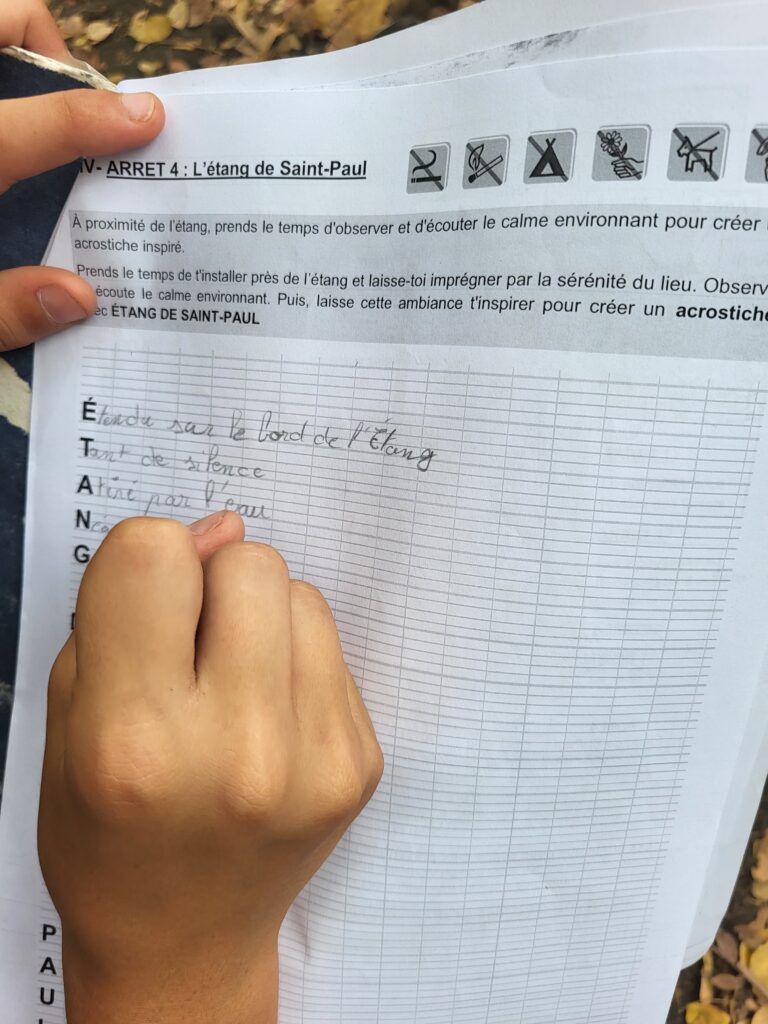 IV- ARRET 4 : L'étang de Saint-Paul
À proximité de l'étang, prends le temps d'observer et d'écouter le calme environnant pour créer
acrostiche inspiré.
Prends le temps de t'installer près de l'étang et laisse-toi imprégner par la sérénité du lieu. Observ
écoute le calme environnant. Puis, laisse cette ambiance t'inspirer pour créer un acrostiche
ec ÉTANG DE SAINT-PAUL
Étendu sur le bord de l'Étang
Tant de silence
Atiré par l'eau
N
G
P
A
U